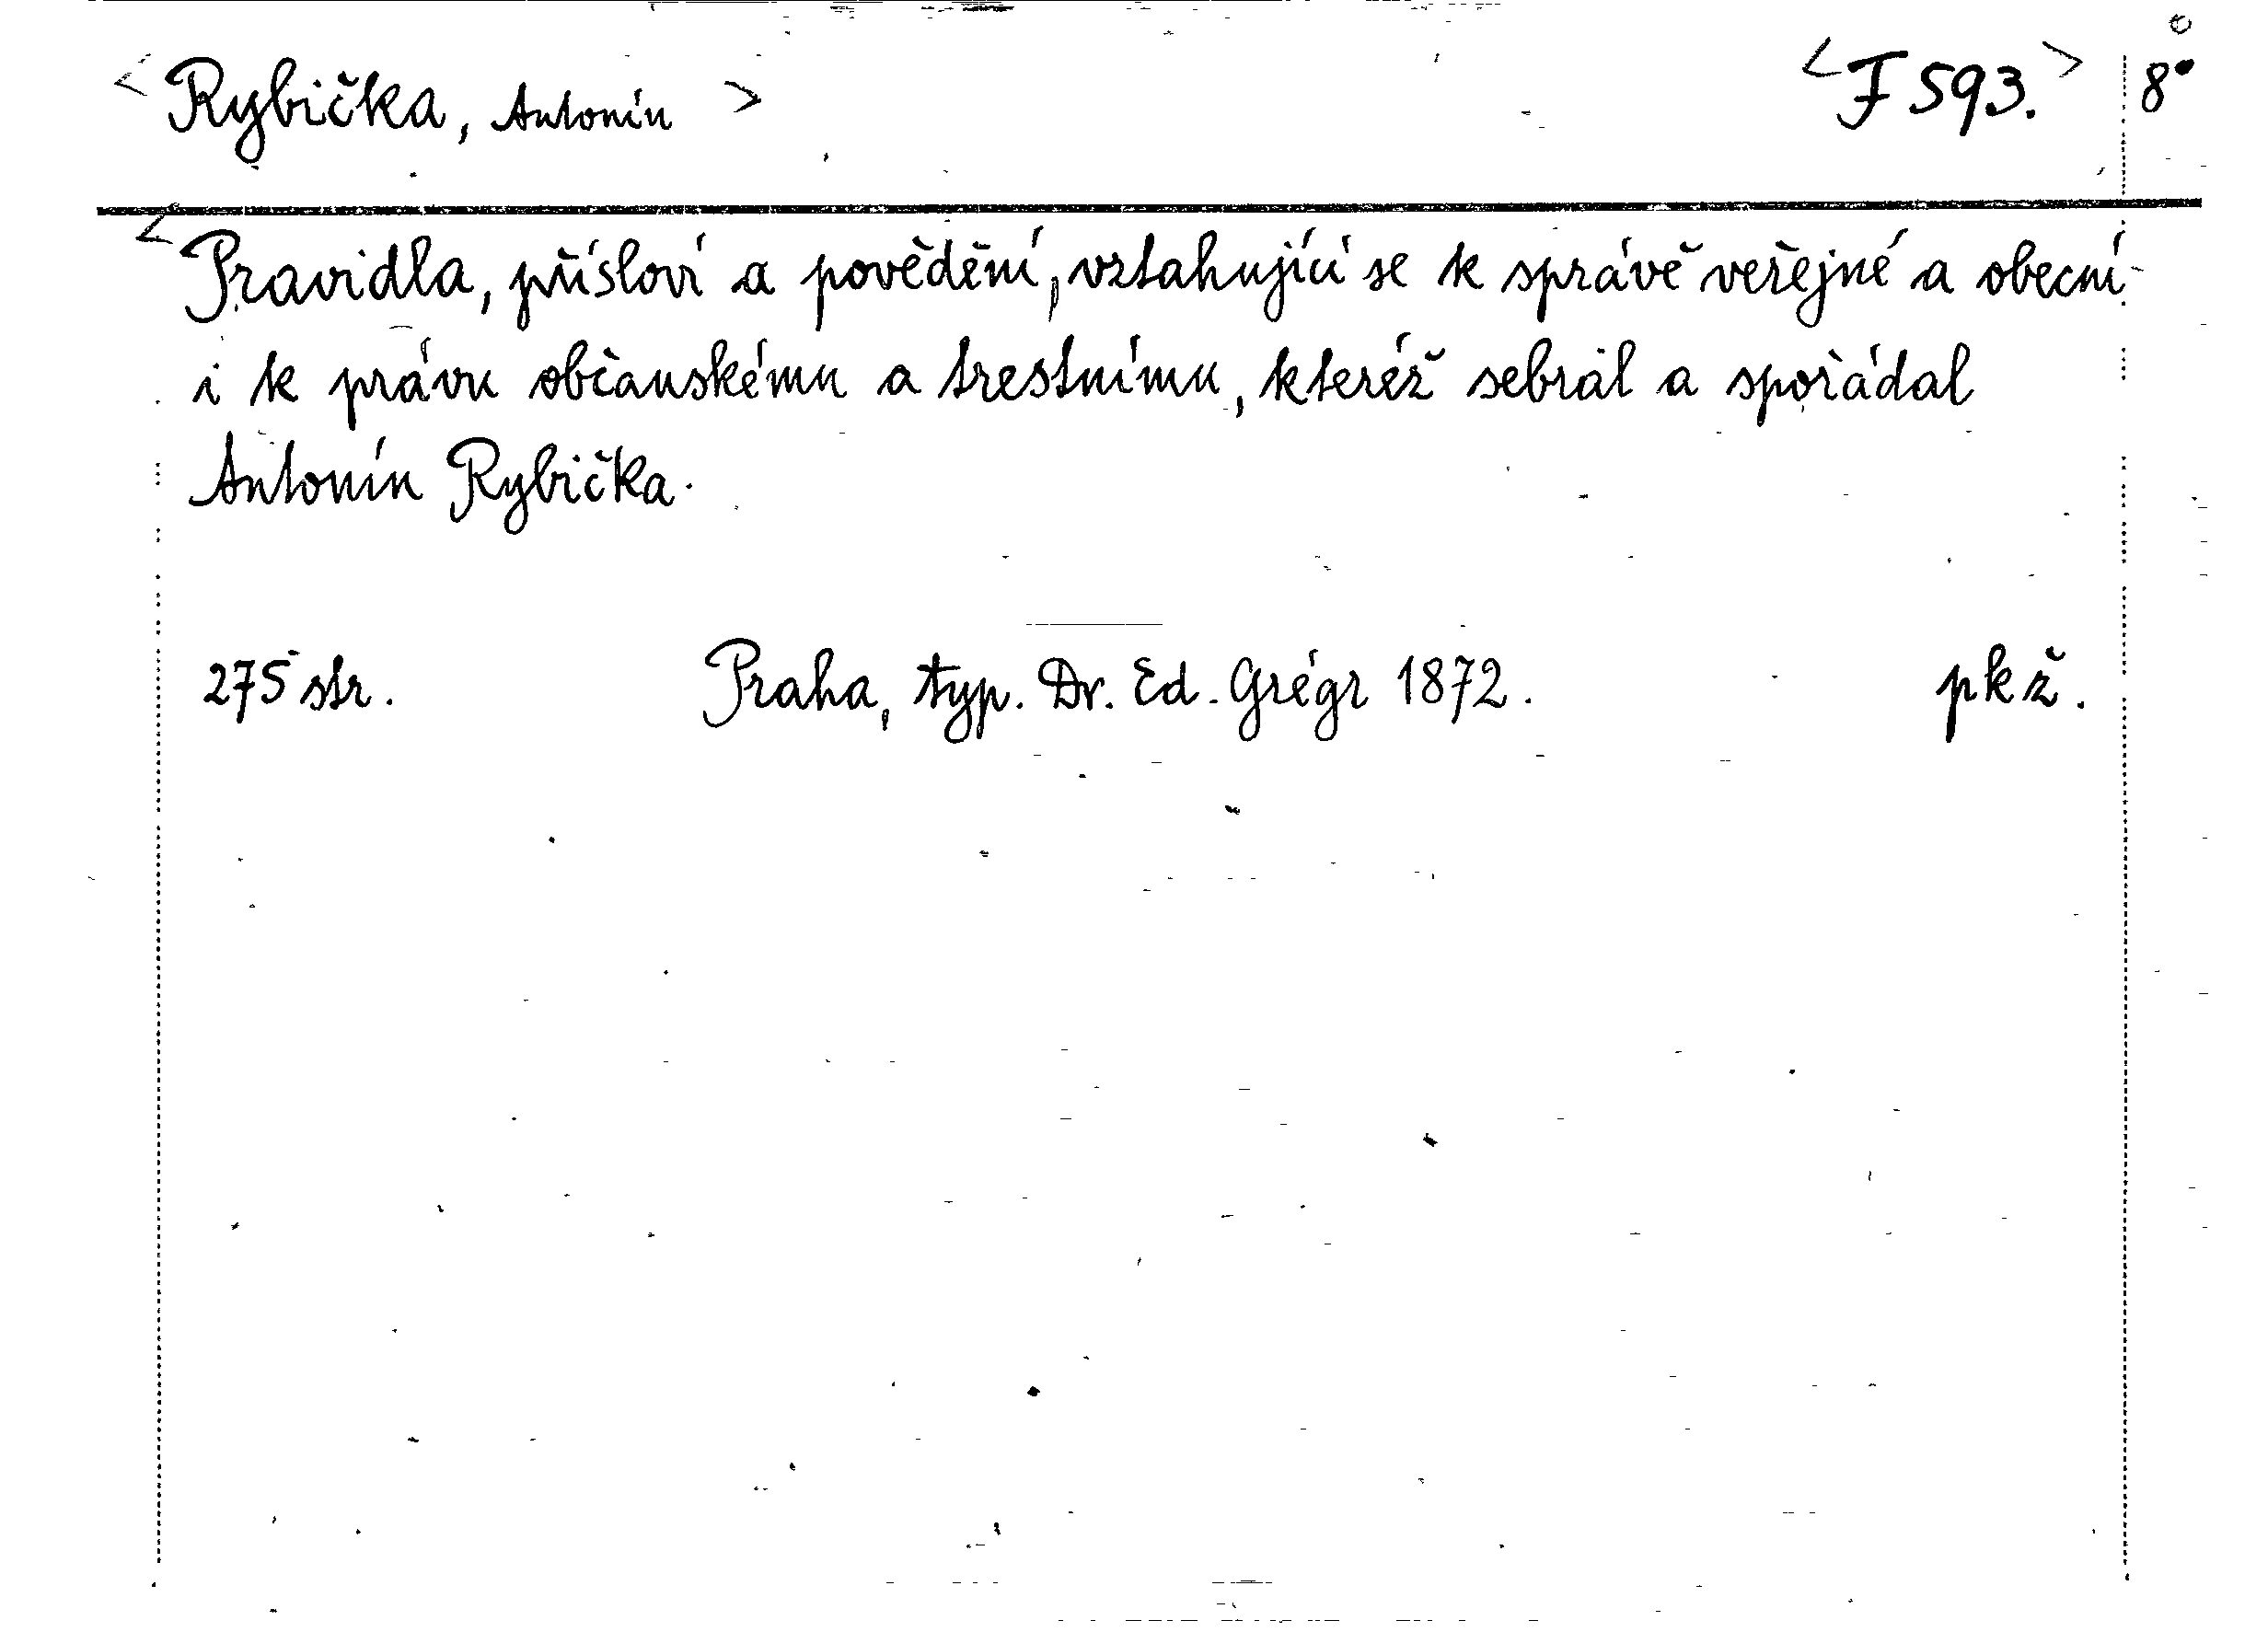 <Rybička, Antonín> <F 593.> 8°
<Pravidla, přísloví a povědění, vztahující se k správě veřejné a obecní
i k právu občanskému a trestnímu, kteréž sebral a spořádal
Antonín Rybička.
275 str. Praha, typ. Dr. Ed. Grégr 1872. pkž.